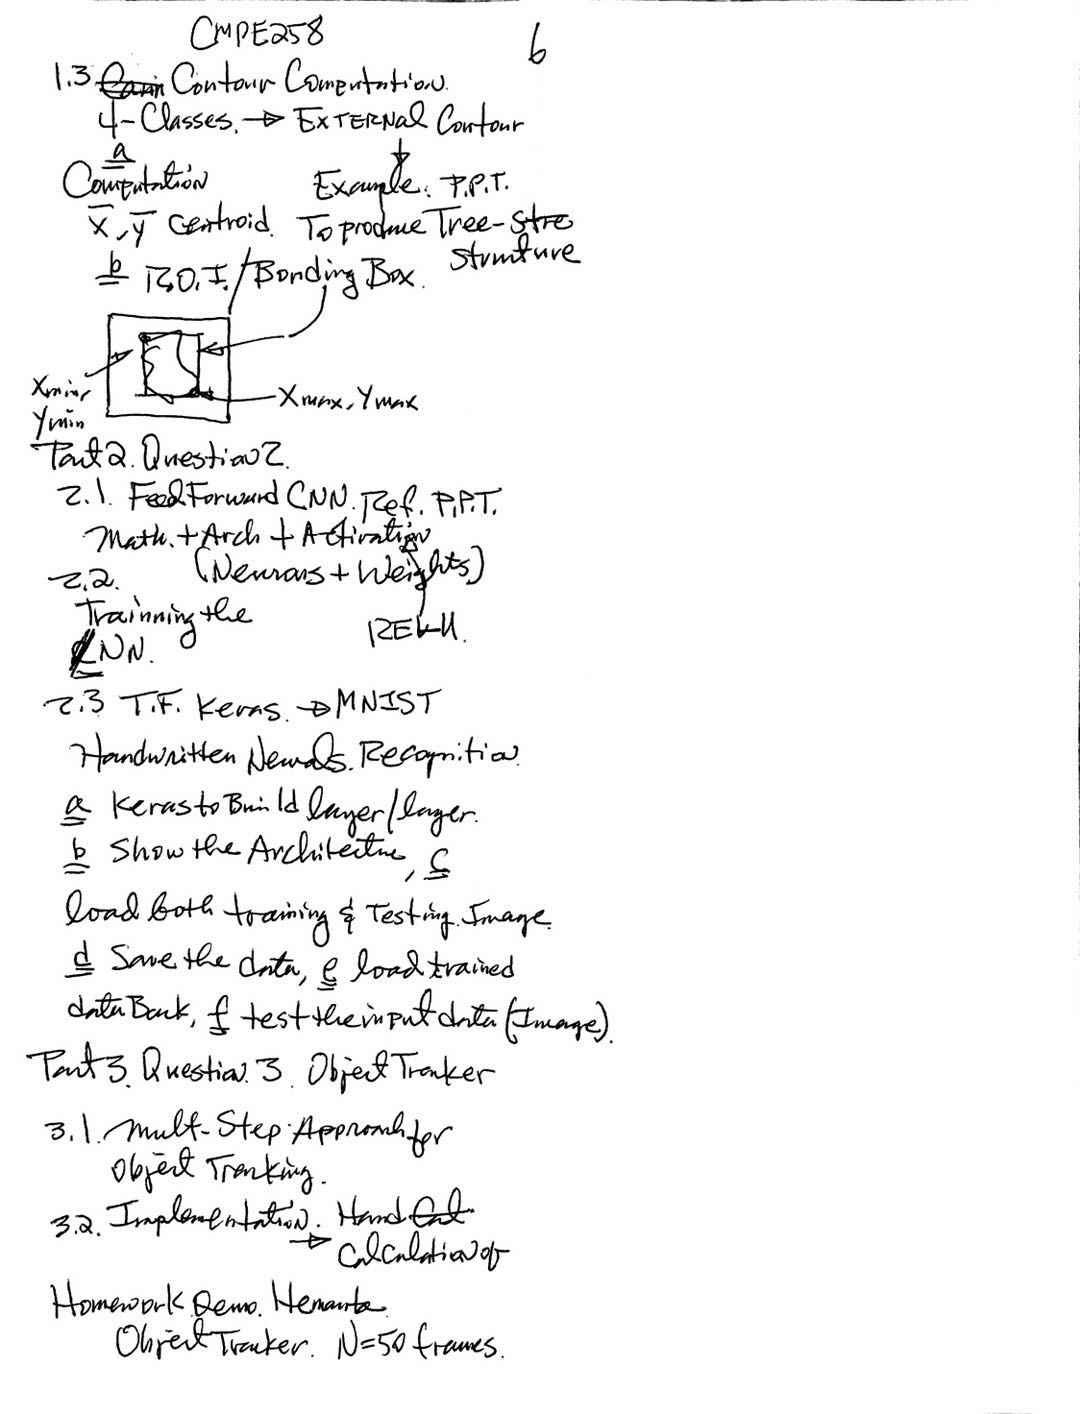 CMPE258
6
1.3 Contour Computation.
4-Classes. → EXTERNAL Contour
a
Computation Example: P.P.T.
x̄, ȳ Centroid. To produce Tree-Stre
Structure
b R.O.I./Bonding Box.
Xmin,
Ymin
Xmax, Ymax
Part 2. Question 2.
2.1. Feed Forward CNN. Ref. P.P.T.
Math. + Arch + Activation
(Neurons + Weights)
2.2.
Trainning the
CNN.
RELU.
2.3 T.F. Keras. → MNIST
Handwritten Recognition.
a Keras to Build layer/layer.
b Show the Architectue, c
load both training & Testing. Image.
d Save the data, e load trained
data Back, f test the input data (Image).
Part 3. Question. 3. Object Tracker
3.1. Mult-Step Approach for
Object Tracking.
3.2. Implementation. Hand Cal
→ Calculation of
Homework Demo.
Object Tracker. N=50 frames.